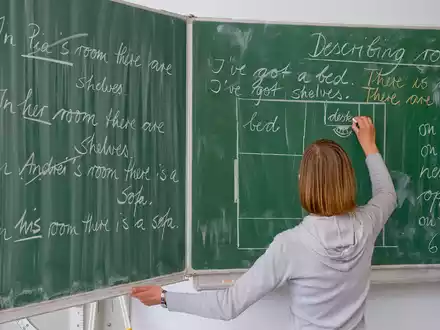 In Pia's room there are
shelves.
In her room there are
shelves.
In Andrei's room there is a
sofa.
In his room there is a sofa.
Describing ro
I've got a bed. There is
I've got shelves. There are
bed
desk
on
on
ne
opp
on